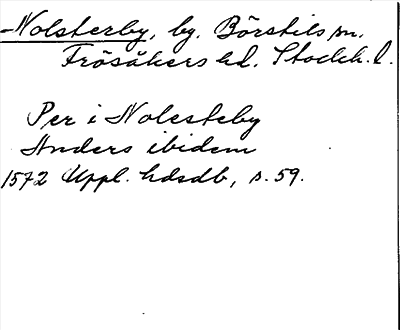 Nolsterby, by. Börstils sn.
Frösåkers hd. Stockh. l.
Per i Nolesteby
Anders ibidem
1572 Uppl. hdsdb, s. 59.